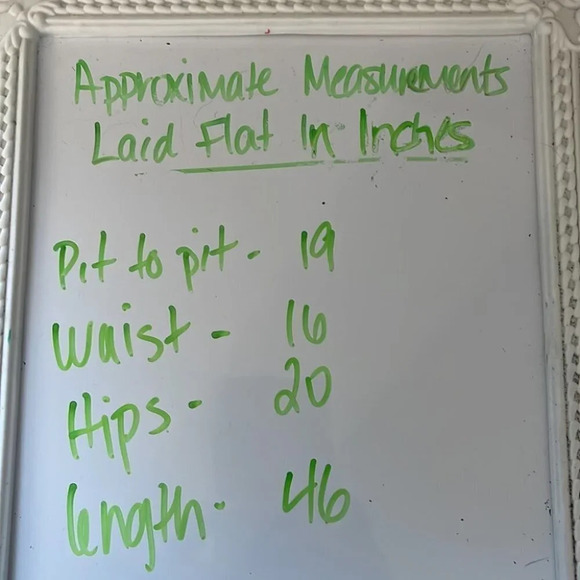 Approximate Measurements
Laid Flat In Inches
Pit to pit - 19
Waist - 16
Hips - 20
length - 46